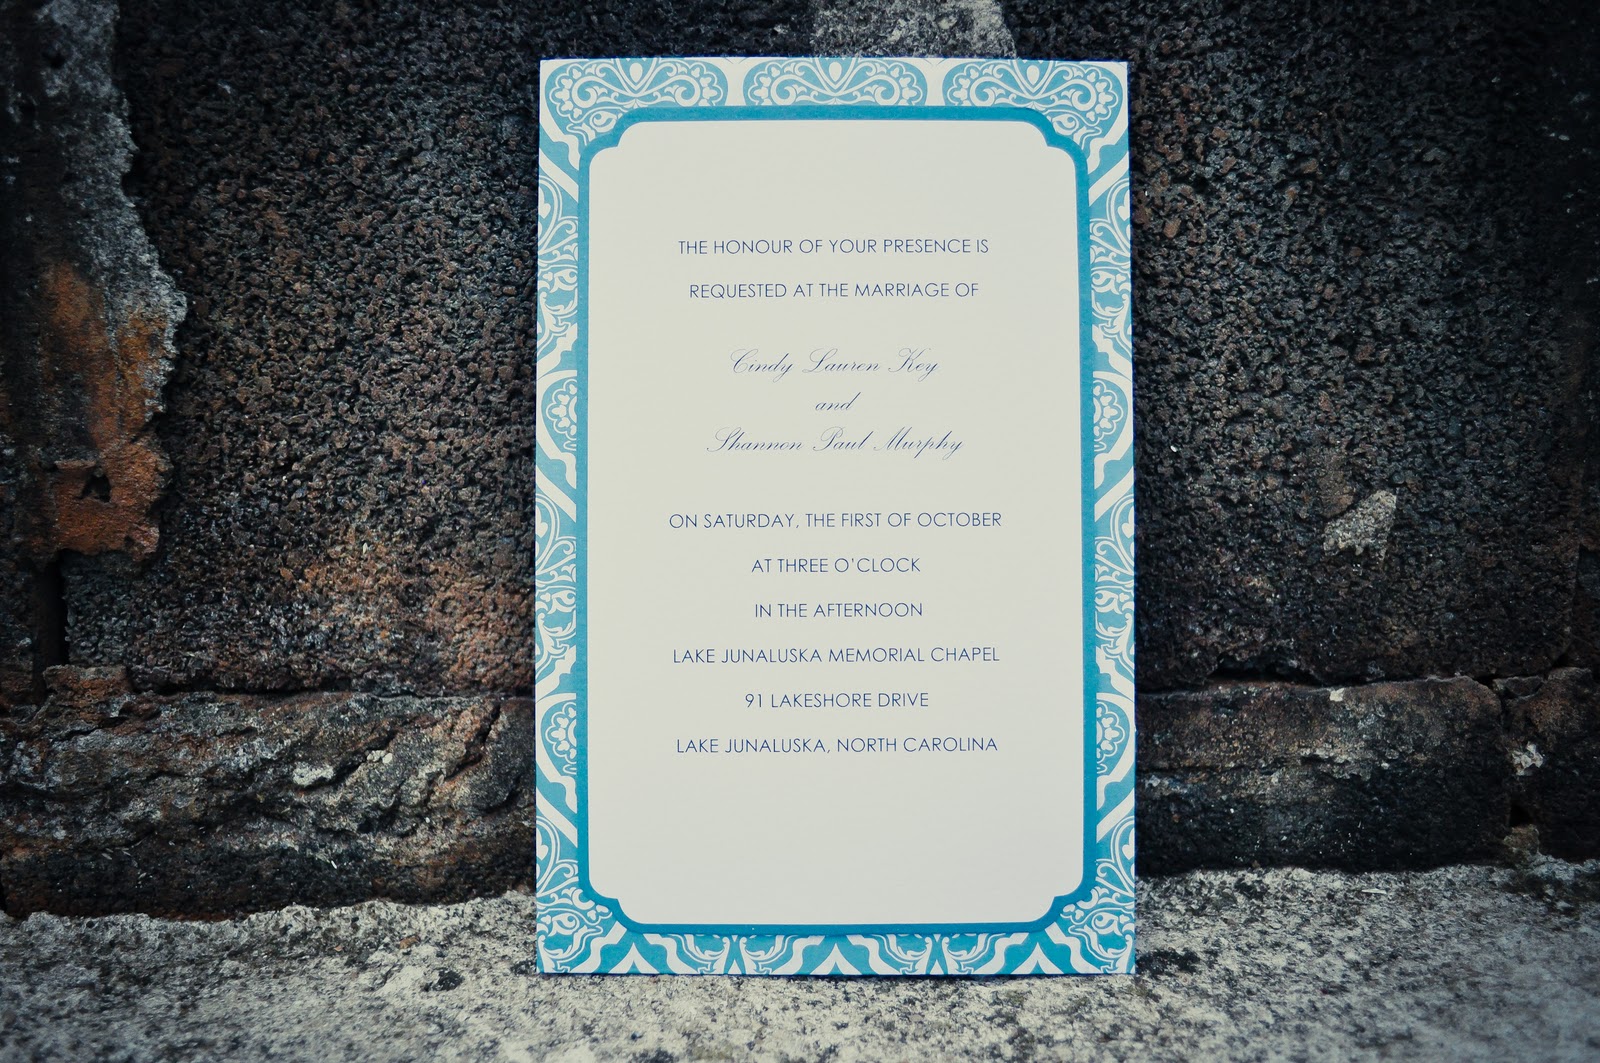 THE HONOUR OF YOUR PRESENCE IS
REQUESTED AT THE MARRIAGE OF
Cindy Lauren Key
and
Shannon Paul Murphy
ON SATURDAY, THE FIRST OF OCTOBER
AT THREE O'CLOCK
IN THE AFTERNOON
LAKE JUNALUSKA MEMORIAL CHAPEL
91 LAKESHORE DRIVE
LAKE JUNALUSKA, NORTH CAROLINA